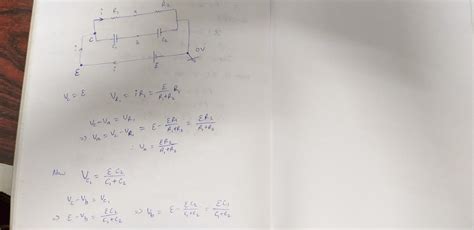 i R₁ a R₂
C
C₁ b C₂
i
E i 0V
V_c = E V_R₁ = iR₁ = E/(R₁+R₂) R₁
V_c - V_a = V_R₁
⇒ V_a = V_c - V_R₁ = E - ER₁/(R₁+R₂) = ER₂/(R₁+R₂)
∴ V_a = ER₂/(R₁+R₂)
Now V_C₁ = E C₂/(C₁+C₂)
V_c - V_b = V_C₁
⇒ E - V_b = EC₂/(C₁+C₂) ⇒ V_b = E - EC₂/(C₁+C₂) = EC₁/(C₁+C₂)